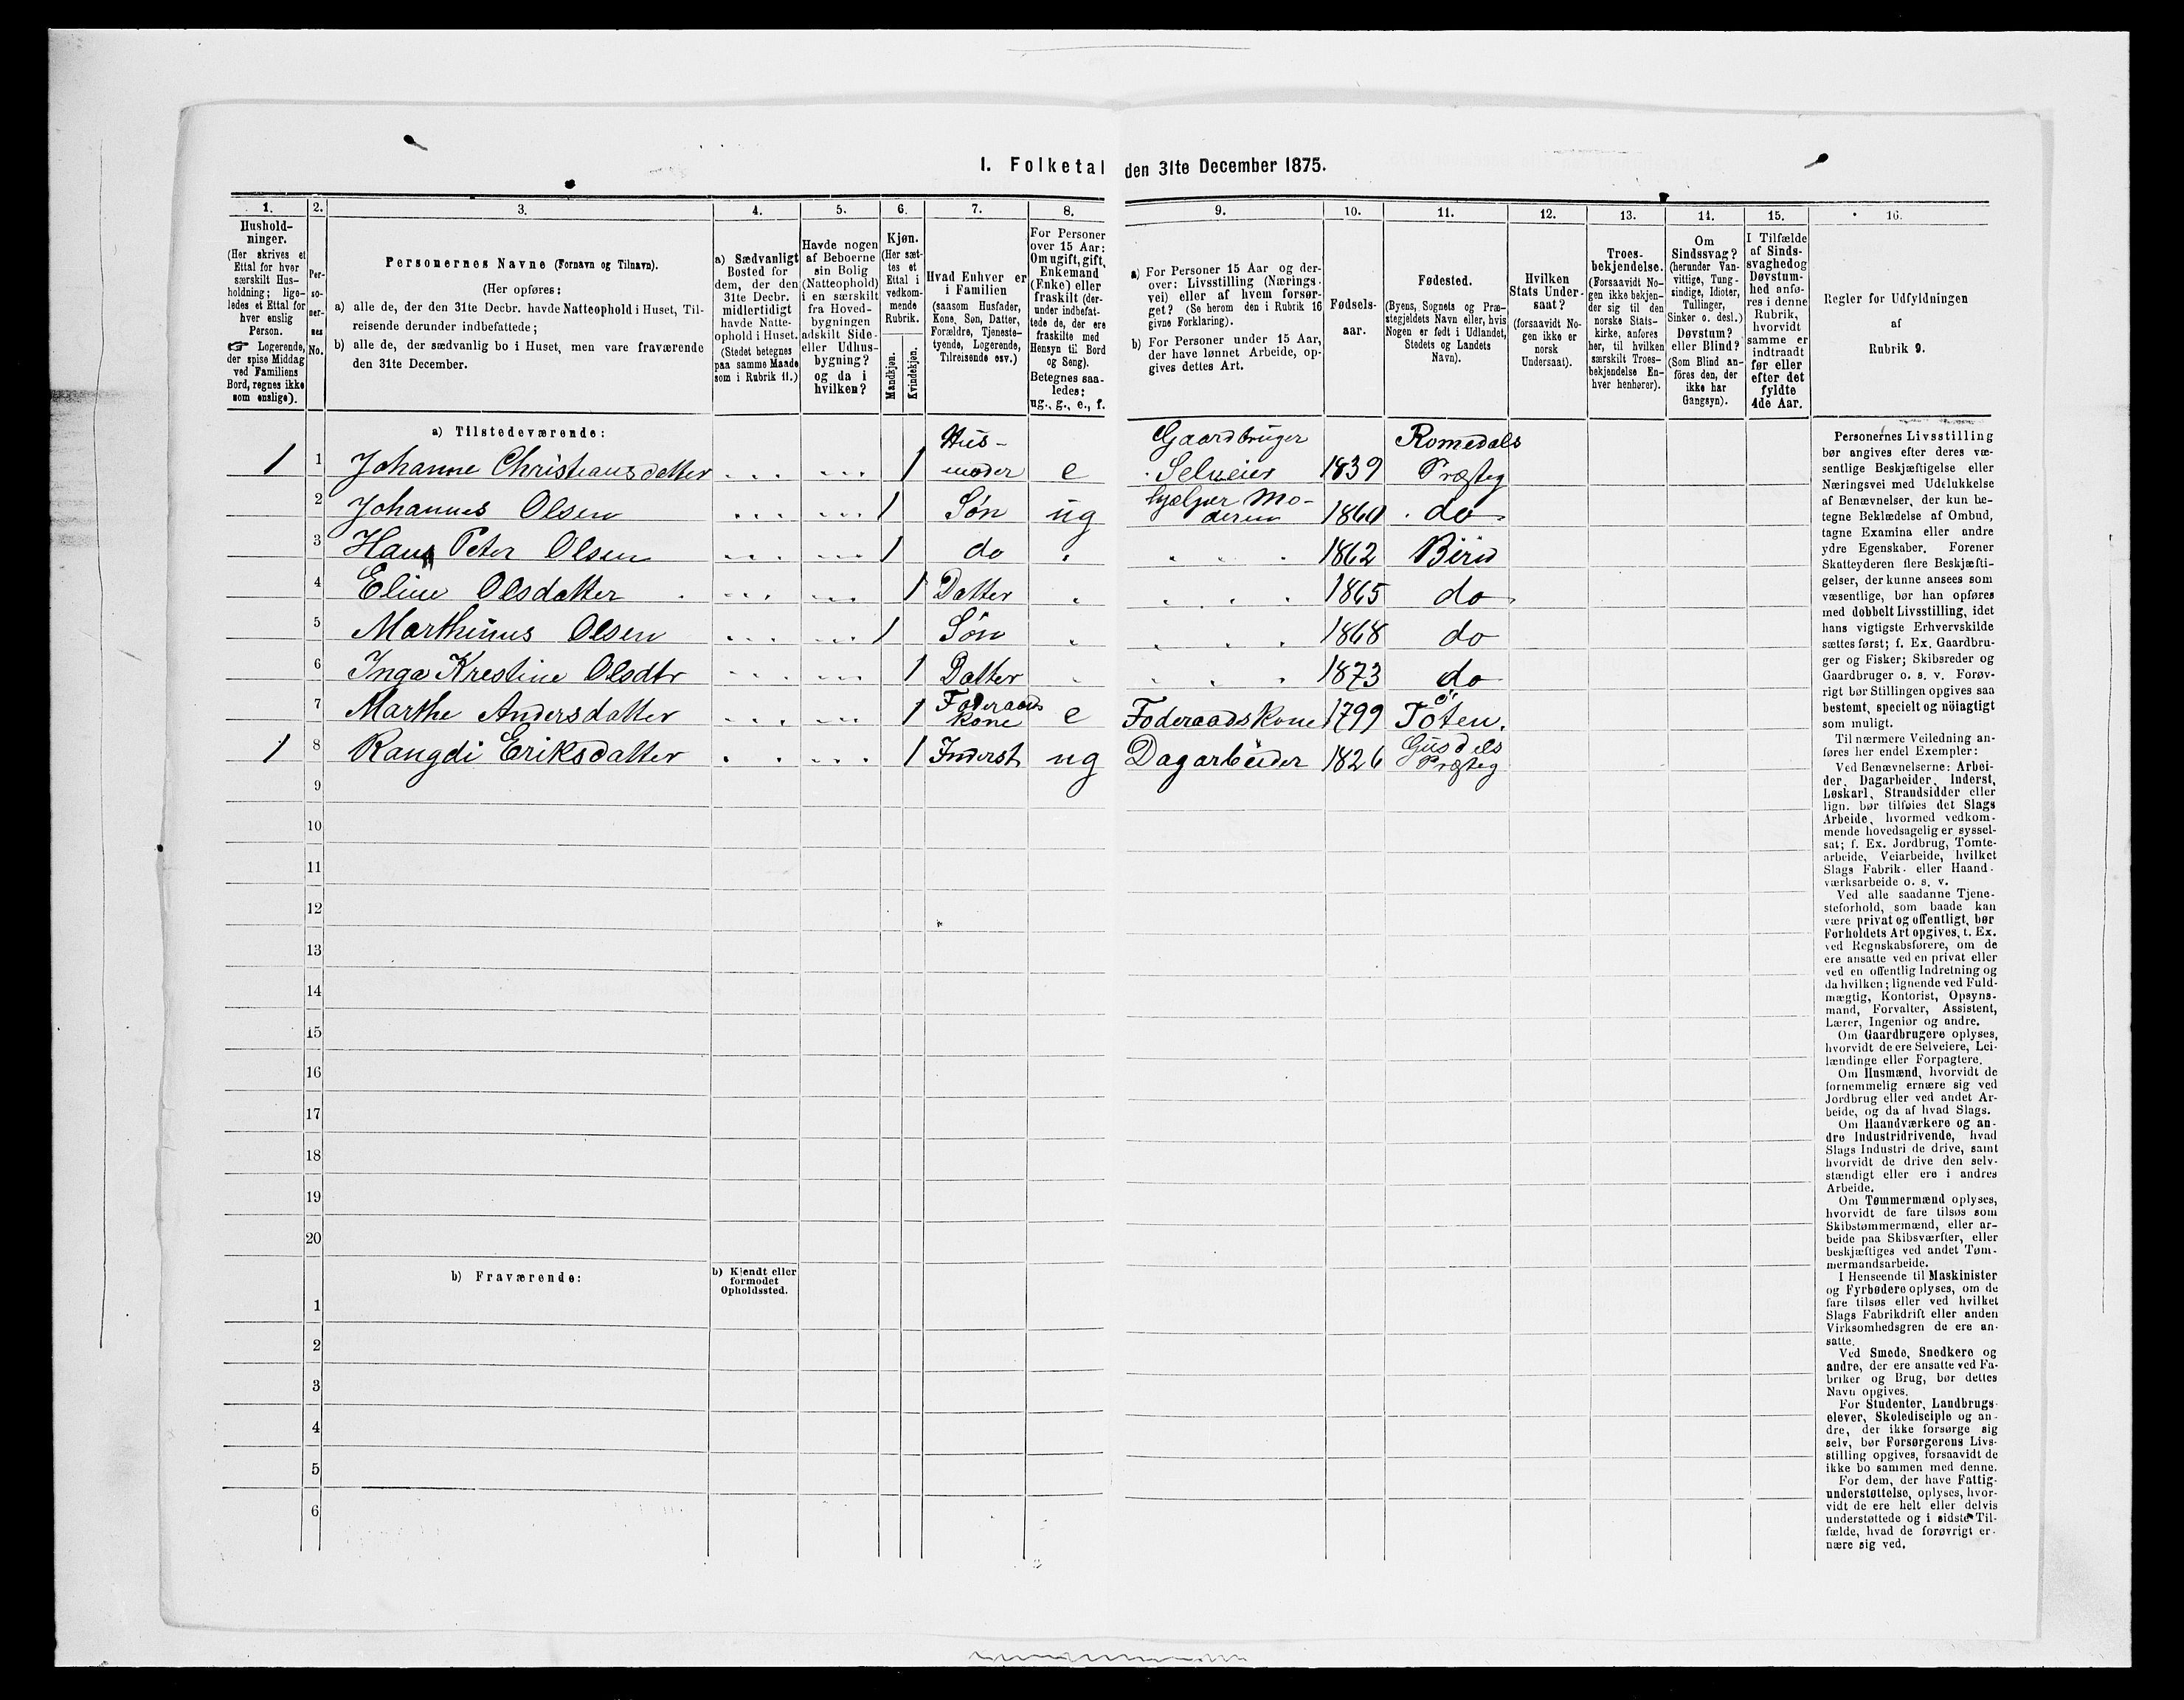 I. Folketal den 31te December 1875.
1.
Hushold-
ninger.
(Her skrives et
Ettal for hver
særskilt Hus-
holdning; lige-
ledes et Ettal for
hver enslig
Person.
☞ Logerende,
der spise Middag
ved Familiens
Bord, regnes ikke
som enslige).
2.
Per-
so-
ner-
nes
No.
3.
Personernes Navne (Fornavn og Tilnavn).
(Her opføres:
a) alle de, der den 31te Decbr. havde Natteophold i Huset, Til-
reisende derunder indbefattede;
b) alle de, der sædvanlig bo i Huset, men vare fraværende
den 31te December.
4.
a) Sædvanligt
Bosted for
dem, der den
31te Decbr.
midlertidigt
havde Natte-
ophold i Huset.
(Stedet betegnes
paa samme Maade
som i Rubrik 11.)
5.
Havde nogen
af Beboerne
sin Bolig
(Natteophold)
i en særskilt
fra Hoved-
bygningen
adskilt Side-
eller Udhus-
bygning?
og da i
hvilken?
6.
Kjøn.
(Her sæt-
tes et
Ettal i
vedkom-
mende
Rubrik.
Mandkjøn.
Kvindekjøn.
7.
Hvad Enhver er
i Familien
(saasom Husfader,
Kone, Søn, Datter,
Forældre, Tjeneste-
tyende, Logerende,
Tilreisende osv.)
8.
For Personer
over 15 Aar:
Om ugift, gift,
Enkemand
(Enke) eller
fraskilt (der-
under indbefat-
tede de, der ere
fraskilte med
Hensyn til Bord
og Seng).
Betegnes saa-
ledes:
ug., g., e., f.
9.
a) For Personer 15 Aar og der-
over: Livsstilling (Nærings-
vei) eller af hvem forsør-
get? (Se herom den i Rubrik 16
givne Forklaring).
b) For Personer under 15 Aar,
der have lønnet Arbeide, op-
gives dettes Art.
10.
Fødsels-
aar.
11.
Fødested.
(Byens, Sognets og Præ-
stegjeldets Navn eller, hvis
Nogen er født i Udlandet,
Stedets og Landets
Navn).
12.
Hvilken
Stats Under-
saat?
(forsaavidt No-
gen ikke er
norsk
Undersaat).
13.
Troes-
bekjendelse.
(Forsaavidt No-
gen ikke bekjen-
der sig til den
norske Stats-
kirke, anføres
her, til hvilken
særskilt Troes-
bekjendelse En-
hver henhører).
14.
Om
Sindssvag?
(herunder Van-
vittige, Tung-
sindige, Idioter,
Tullinger,
Sinker o. desl.)
Døvstum?
eller Blind?
(Som Blind an-
föres den, der
ikke har
Gangsyn).
15.
I Tilfælde
af Sinds-
svaghed og
Døvstum-
hed anfø-
res i denne
Rubrik,
hvorvidt
samme er
indtraadt
før eller
efter det
fyldte
4de Aar.
16.
Regler for Udfyldningen
af
Rubrik 9.
a) Tilstedeværende:
1 1 Johanne Christiansdatter 1 Hus-
moder e Gaardbruger
Selveier 1839 Romedals
Præsteg
2 Johannes Olsen 1 Søn ug hjælper Mo-
deren 1860 do
3 Hans Peter Olsen 1 do 1862 Birid
4 Eline Olsdatter 1 Datter 1865 do
5 Marthinus Olsen 1 Søn 1868 do
6 Inga Krestine Olsdtr 1 Datter 1873 do
7 Marthe Andersdatter 1 Foderaads
Kone e Foderaads Kone 1799 Töten.
1 8 Rangdi Eriksdatter 1 Inderst ug Dagarbeider 1826 Gusdals
Præsteg
9
10
11
12
13
14
15
16
17
18
19
20
b) Fraværende:
b) Kjendt eller
formodet
Opholdssted.
1
2
3
4
5
6
Personernes Livsstilling
bør angives efter deres væ-
sentlige Beskjæftigelse eller
Næringsvei med Udelukkelse
af Benævnelser, der kun be-
tegne Beklædelse af Ombud,
tagne Examina eller andre
ydre Egenskaber. Forener
Skatteyderen flere Beskjæfti-
gelser, der kunne ansees som
væsentlige, bør han opføres
med dobbelt Livsstilling, idet
hans vigtigste Erhvervskilde
sættes først; f. Ex. Gaardbru-
ger og Fisker; Skibsreder og
Gaardbruger o. s. v. Forøv-
rigt bør Stillingen opgives saa
bestemt, specielt og nöiagtigt
som muligt.
Til nærmere Veiledning an-
føres her endel Exempler:
Ved Benævnelserne: Arbei-
der, Dagarbeider, Inderst,
Løskarl, Strandsidder eller
lign. bør tilføies det Slags
Arbeide, hvormed vedkom-
mende hovedsagelig er syssel-
sat; f. Ex. Jordbrug, Tomte-
arbeide, Veiarbeide, hvilket
Slags Fabrik- eller Haand-
værksarbeide o. s. v.
Ved alle saadanne Tjene-
steforhold, som baade kan
være privat og offentligt, bør
Forholdets Art opgives, t. Ex.
ved Regnskabsførere, om de
ere ansatte ved en privat eller
ved en offentlig Indretning og
da hvilken; lignende ved Fuld-
mægtig, Kontorist, Opsyns-
mand, Forvalter, Assistent,
Lærer, Ingeniør og andre.
Om Gaardbrugere oplyses,
hvorvidt de ere Selveiere, Lei-
lændinge eller Forpagtere.
Om Husmænd, hvorvidt de
fornemmelig ernære sig ved
Jordbrug eller ved andet Ar-
beide, og da af hvad Slags.
Om Haandværkere og an-
dre Industridrivende, hvad
Slags Industri de drive, samt
hvorvidt de drive den selv-
stændigt eller ere i andres
Arbeide.
Om Tømmermænd oplyses,
hvorvidt de fare tilsøs som
Skibstømmermænd, eller ar-
beide paa Skibsværfter, eller
beskjæftiges ved andet Tøm-
mermandsarbeide.
I Henseende til Maskinister
og Fyrbødere oplyses, om de
fare tilsøs eller ved hvilket
Slags Fabrikdrift eller anden
Virksomhedsgren de ere an-
satte.
Ved Smede, Snedkere og
andre, der ere ansatte ved Fa-
briker og Brug, bør dettes
Navn opgives.
For Studenter, Landbrugs-
elever, Skoledisciple og an-
dre, der ikke forsørge sig
selv, bør Forsørgerens Livs-
stilling opgives, forsaavidt de
ikke bo sammen med denne.
For dem, der have Fattig-
understøttelse, oplyses, hvor-
vidt de ere helt eller delvis
understøttede og i sidste Til-
fælde, hvad de forøvrigt er-
nære sig ved.